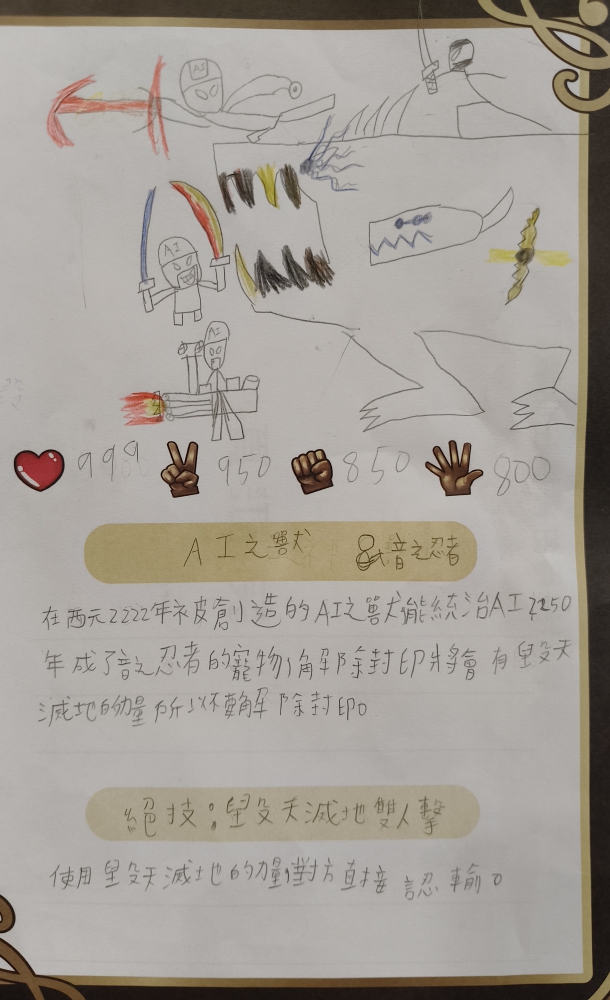 AI
AI
AI
999 950 850 800
AI之獸 &音之忍者
在西元2222年被創造的AI之獸能統治AI2250
年成了音之忍者的寵物,解除封印將會有毀天
滅地的力量所以不要解除封印。
絕技:毀天滅地雙人擊
使用毀天滅地的力量對方直接認輸。